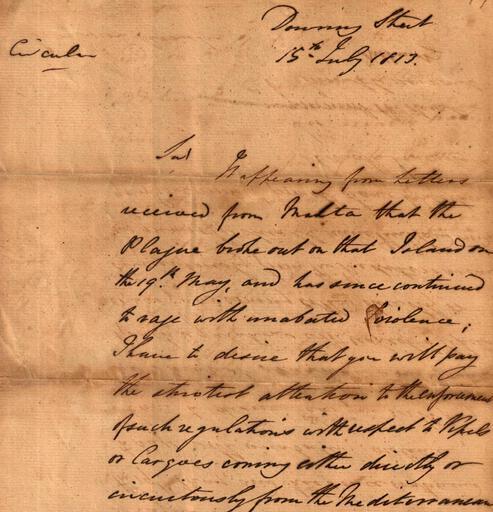 Downing Street
Circular
15th July 1813.
Sir
It appearing from Letters
received from Malta that the
Plague broke out on that Island on
the 19th May, and has since continued
to rage with unabated violence,
I have to desire that you will pay
the strictest attention to the enforcement
of such regulations with respect to Vessels
or Cargoes coming either directly or
circuitously from the Mediterranean